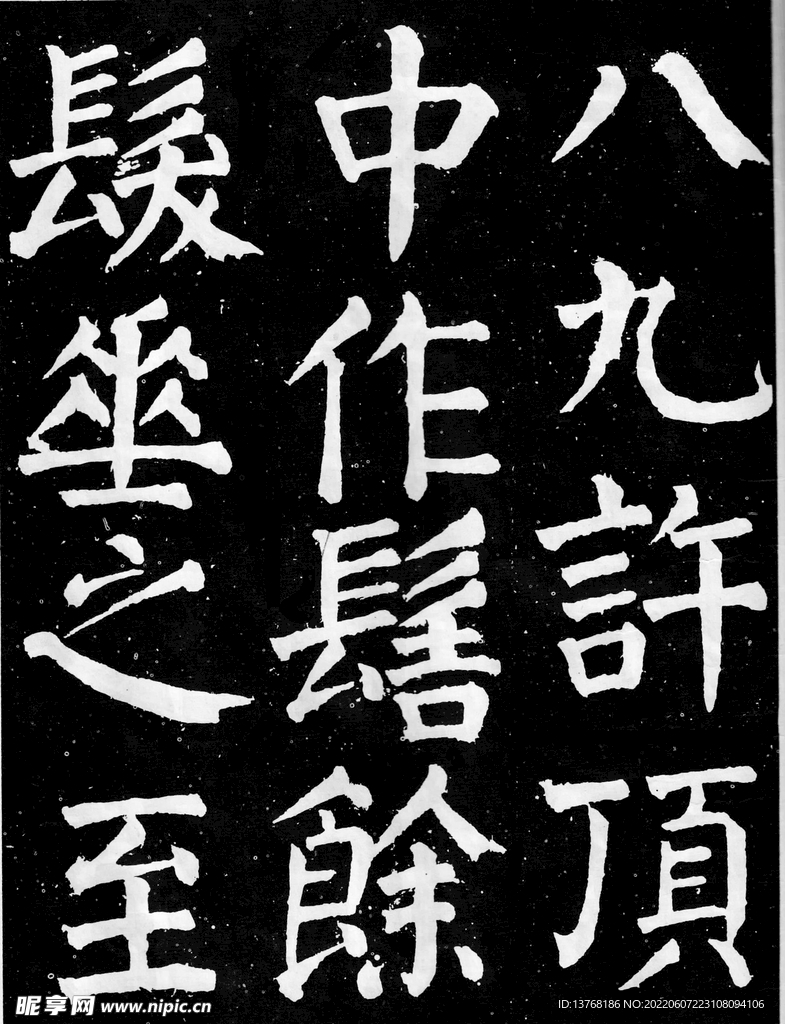 八九許頂
中作髻餘
髮垂之至
昵享网 www.nipic.cn
ID:13768186 NO:20220607223108094106